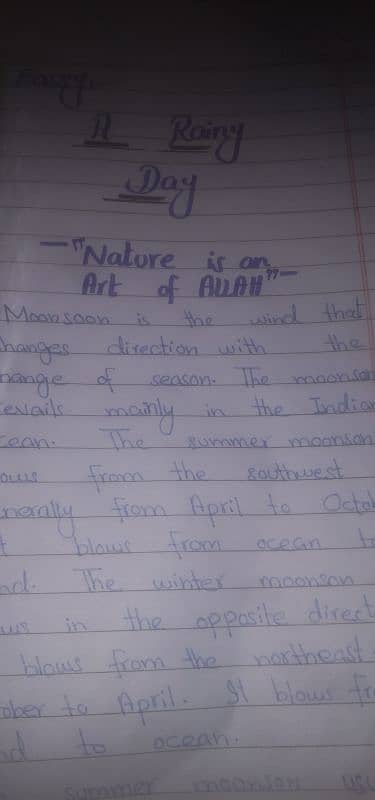 Essay.
A Rainy
Day
"Nature is an
Art of ALLAH"
Moonsoon is the wind that
hanges direction with the
hange of season. The moonson
evails mainly in the Indian
cean. The summer moonson
ows from the southwest
nerally from April to Octob
t blows from ocean to
nd. The winter moonson
ws in the opposite direct
blows from the northeast
ober to April. It blows fr
nd to ocean.
summer moonson usu